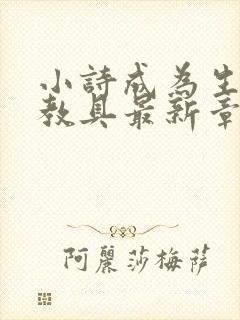 小詩成為生
教具最新章
阿麗莎梅萨